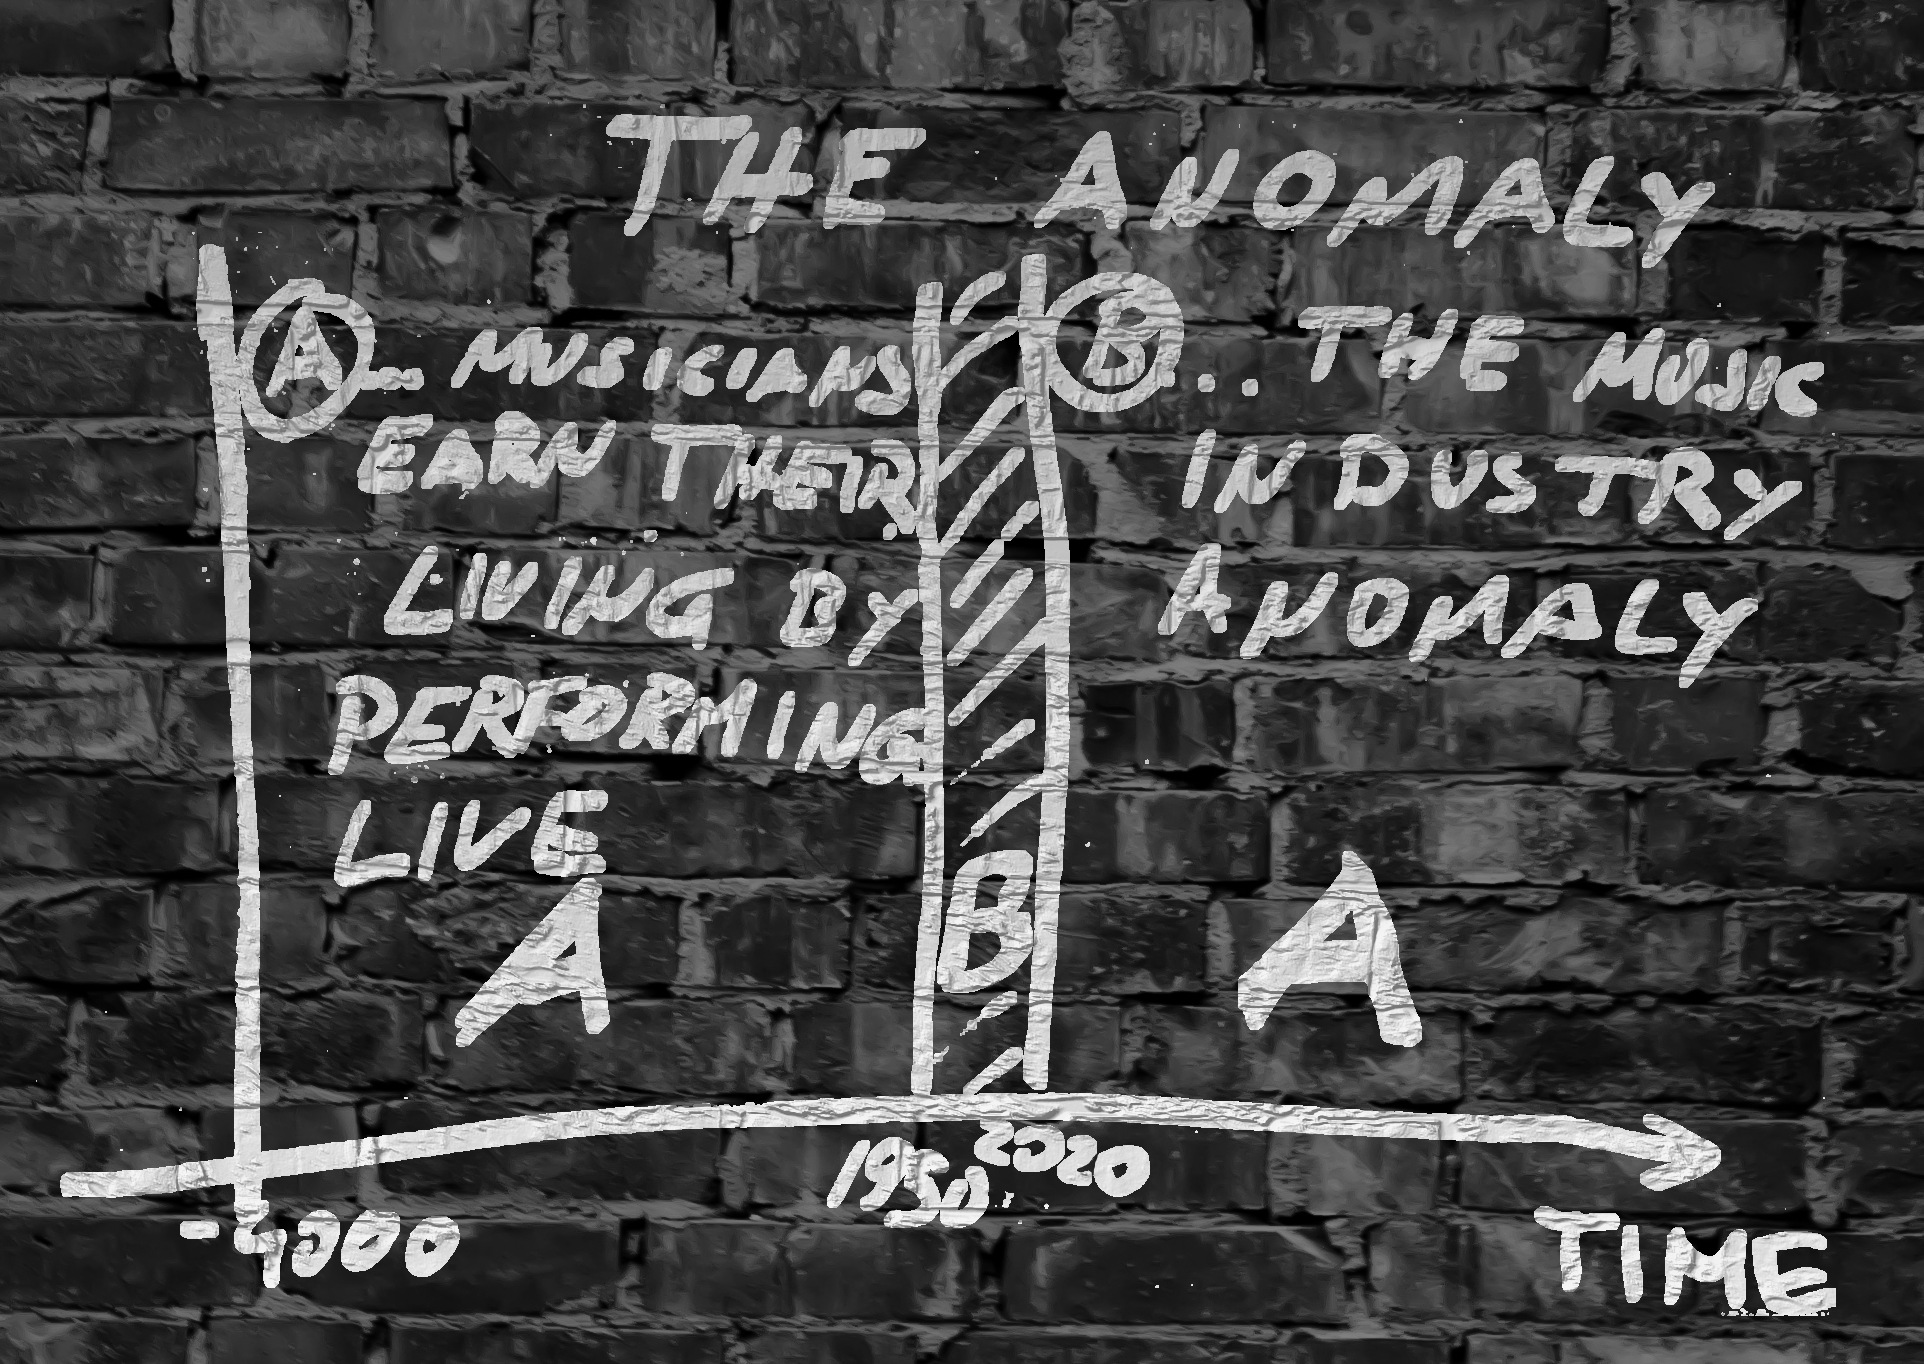 THE ANOMALY
A... MUSICIANS
EARN THEIR
LIVING BY
PERFORMING
LIVE
B... THE MUSIC
INDUSTRY
ANOMALY
A
B
A
-4000
1950
2020
TIME